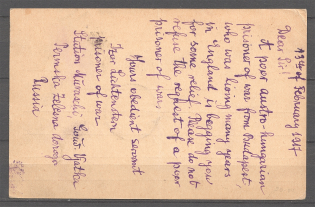 13th of February 1917
Dear Sir!
A poor austro-hungarian
prisoner of war from Budapest
who was living many years
in England is begging you
for some relief. Please do not
refuse the request of a poor
prisoner of war.
Yours obedient servant
prisoner of war
Station
Russia